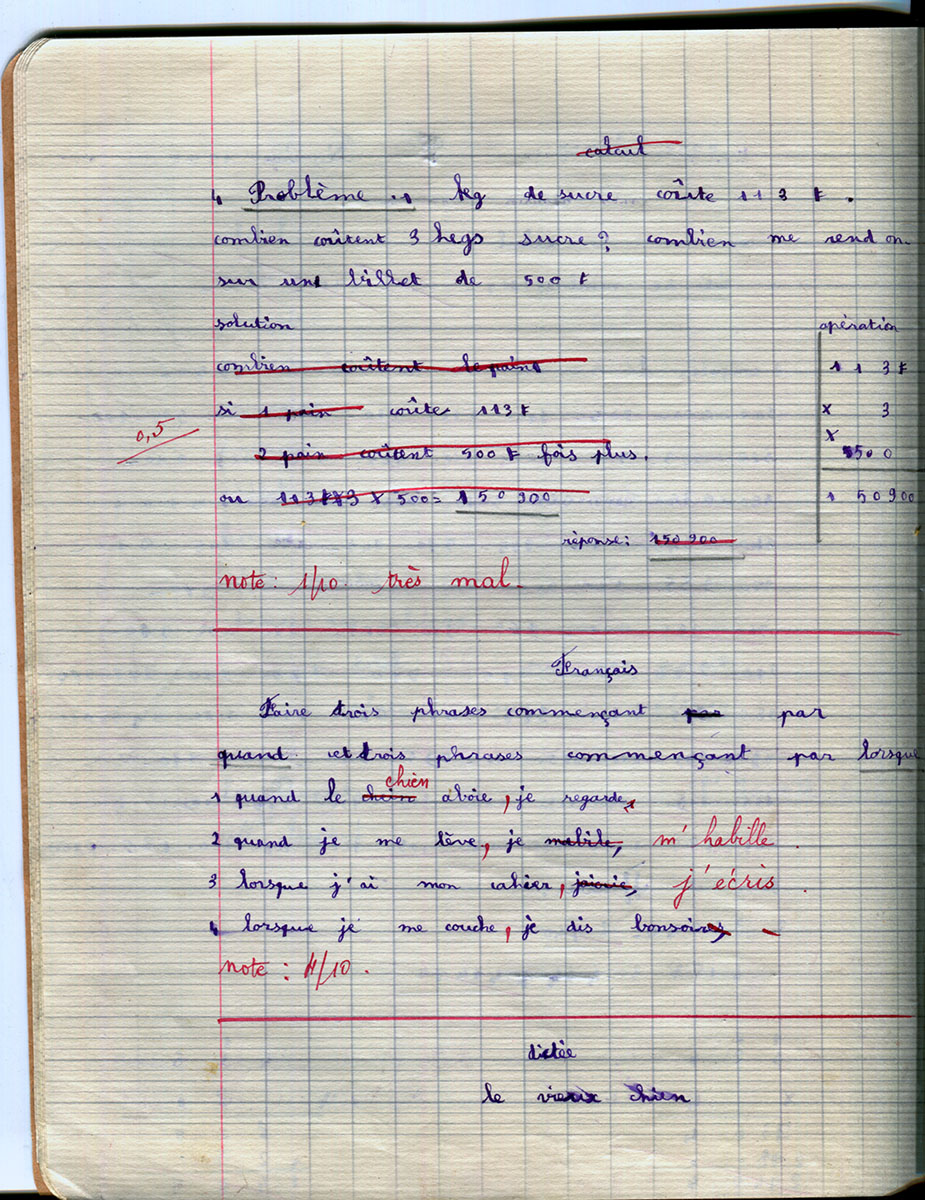 calcul
Problème . 1 kg de sucre coûte 113 F.
combien coûtent 3 kegs sucre? combien me rend on
sur un billet de 500 F
solution
opération
combien coûtent le pain
113 F
si 1 pain coûte 113 F
x 3
0,5
x
2 pain coûtent 500 F fois plus.
500
ou 113 F x 3 x 500 = 150 900
1 50900
réponse: 150 900
note: 1/10. très mal.
Français
Faire trois phrases commençant par par
quand et trois phrases commençant par lorsque
chien
1 quand le chein aboie, je regarde.
2 quand je me lève, je mabile, m'habille
3 lorsque j'ai mon cahier, j'écris.
4 lorsque je me couche, je dis bonsoir
note : 4/10.
dictée
le vieux chien